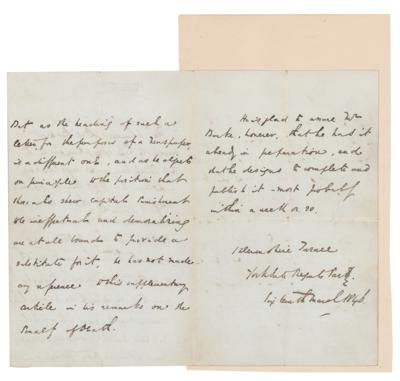 But as the heading of such a
letter, for the purposes of a Newspaper,
is a different one, and as he objects
on principle to the position that
those who shew Capital Punishment
to be ineffectual and demoralizing
are at all bound to provide a
substitute for it, he has not made
any reference to this supplementary
article in his remarks on the
Punishment of Death.
He is glad to assure Mr
Burke, however, that he has it
already in preparation, and
that he designs to complete and
publish it most probably
within a week or so.
1 Devonshire Terrace
York Gate Regents Park
Sixteenth March 1846.